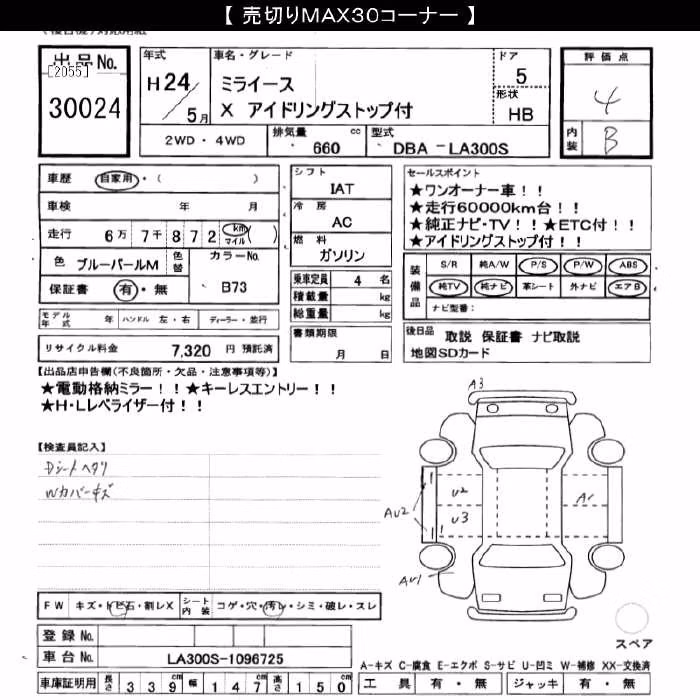 【 売切りMAX30コーナー 】
出品No.
[2055]
30024
年式
H24
5月
車名・グレード
ミライース
X アイドリングストップ付
ドア
5
形状
HB
評価点
4
内装
B
2WD・4WD
排気量
660 cc
型式
DBA -LA300S
車歴 自家用・( )
車検 年 月
走行 6万 7千 8 7 2 km マイル ( )
色 ブルーパールM 色替
カラーNo.
B73
保証書 有・無
シフト
IAT
冷房
AC
燃料
ガソリン
乗車定員 4 名
積載量 kg
総重量 kg
セールスポイント
★ワンオーナー車!!
★走行60000km台!!
★純正ナビ・TV!!★ETC付!!
★アイドリングストップ付!!
装備品
S/R 純A/W P/S P/W ABS
純TV 純ナビ 革シート 外ナビ エアB
ナビ型番:
モデル年式 年 ハンドル 左・右 ディーラー・並行
リサイクル料金 7,320 円 預託済
書類期限
月 日
後日品 取説 保証書 ナビ取説
地図SDカード
【出品店申告欄(不良箇所・欠品・注意事項等)】
★電動格納ミラー!!★キーレスエントリー!!
★H・Lレベライザー付!!
【検査員記入】
Dシートヘタリ
Wカバーキズ
A3
U2
U3
AU2
A1
AU1
スペア
FW キズ・トビ石・割レX
シート内装 コゲ・穴・汚レ・シミ・破レ・スレ
登録No.
車台No. LA300S-1096725
車庫証明用 長さ 339cm 幅 147cm 高さ 150cm
A-キズ C-腐食 E-エクボ S-サビ U-凹ミ W-補修 XX-交換済
工具 有・無 ジャッキ 有・無